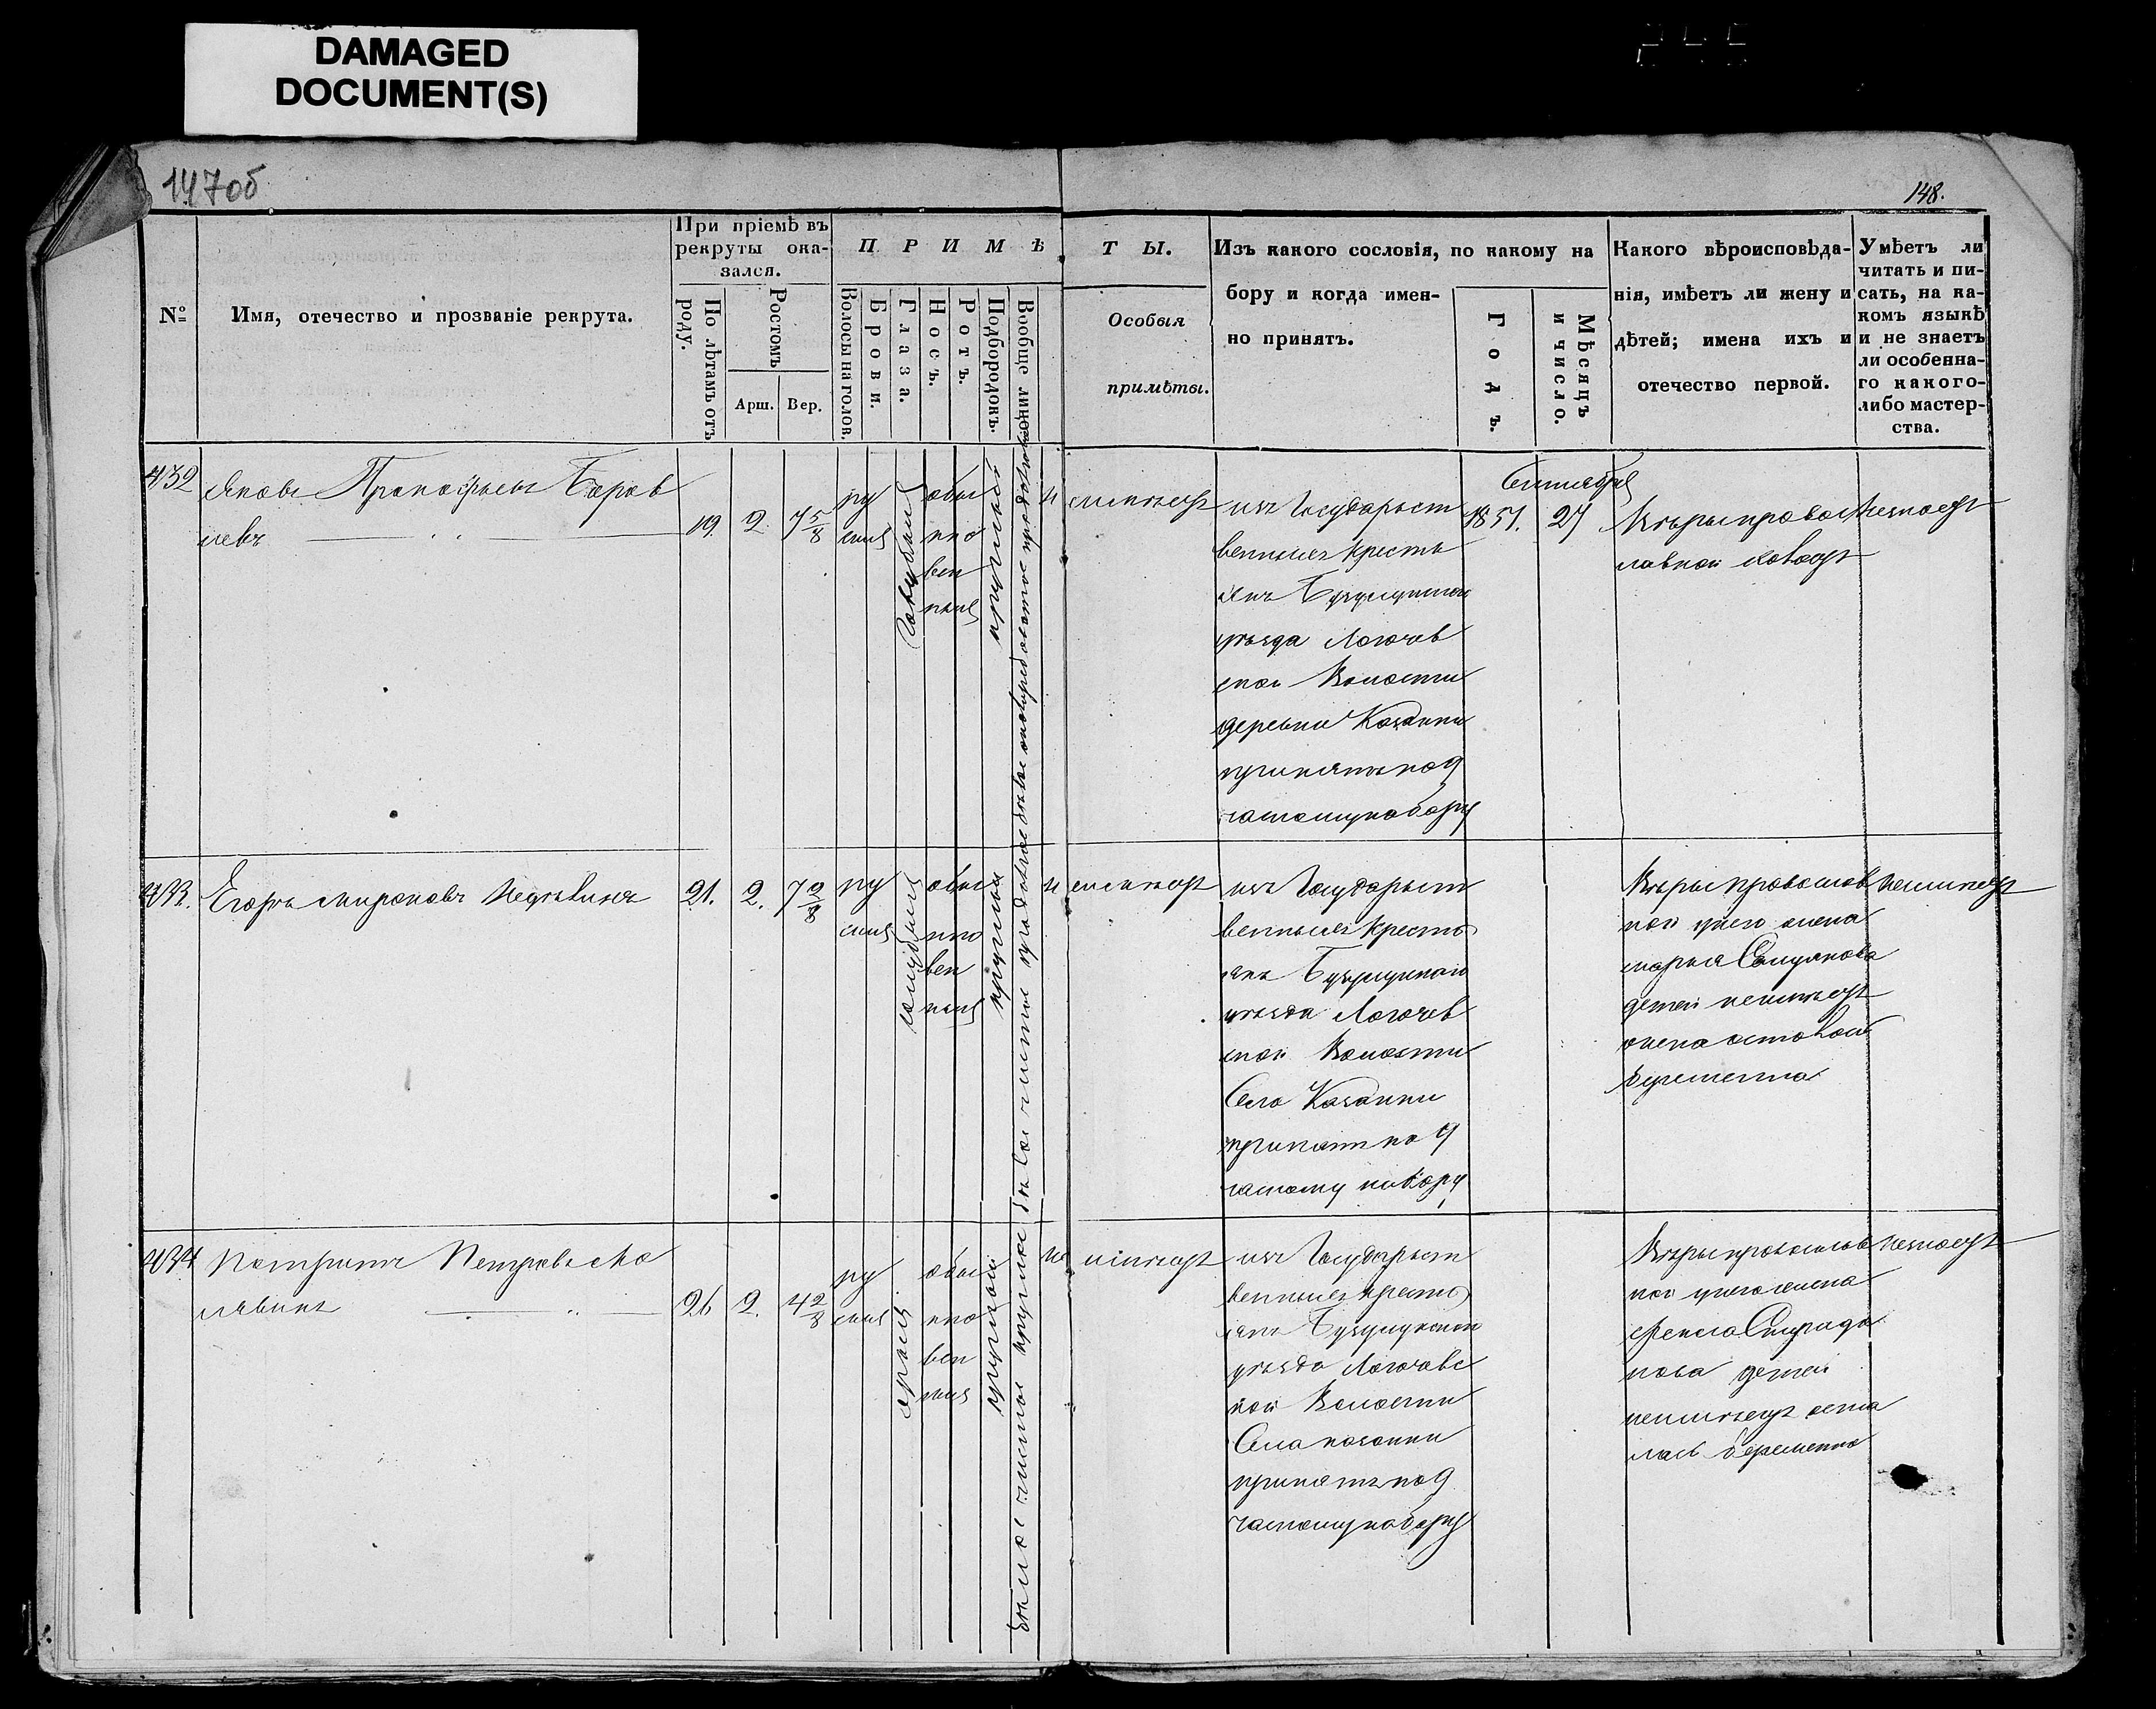 DAMAGED
DOCUMENT(S)
147об
148.
№
Имя, отечество и прозваніе рекрута.
При пріемѣ въ
рекруты ока-
зался.
По лѣтамъ отъ
роду.
Ростомъ
Арш.
Вер.
ПРИМѢ
Волосы на голов.
Брови.
Глаза.
Носъ.
Ротъ.
Подбородокъ.
Вообще лицо
ТЫ.
Особыя
примѣты.
Изъ какого сословія, по какому на
бору и когда имен-
но принятъ.
Годъ.
Мѣсяцъ
и число.
Какого вѣроисповѣда-
нія, имѣетъ ли жену и
дѣтей; имена ихъ и
отечество первой.
Умѣетъ ли
читать и пи-
сать, на ка-
комъ языкѣ
и не знаетъ
ли особенна-
го какого-
либо мастер-
ства.
432
Яковъ Прокофьевъ
19.
2
7 5/8
ру
сыя
голубыя
обык
но
вен
ныя
круглый
не имѣетъ
изъ Государст
венныхъ кресть
янъ Бузулукскаго
уѣзда Логачев
ской Волости
деревни Казанки
принятъ по 9
частному набору
Сентября
1851.
27
Вѣры правос
лавной холостъ
433.
Егоръ Мироновъ
21.
2.
7 2/8
ру
сыя
голубыя
обык
но
вен
ныя
круглый
чистое
не имѣетъ
изъ Государст
венныхъ кресть
янъ Бузулукскаго
уѣзда Логачев
ской Волости
Села Казанки
принятъ по 9
частному набору
Вѣры православ
ной у него жена
Марья
детей неимѣетъ
беременна
434
Петровъ Мо
26
2.
4 2/8
ру
сыя
обык
но
вен
ныя
круглый
бѣлое чистое круглое
не имѣетъ
изъ Государст
венныхъ кресть
янъ Бузулукскаго
уѣзда Логачевс
кой Волости
Села Казанки
принятъ по 9
частному набору
Вѣры православ
ной у него жена
Спиридо
нова детей
неимѣетъ оста
лась беременна